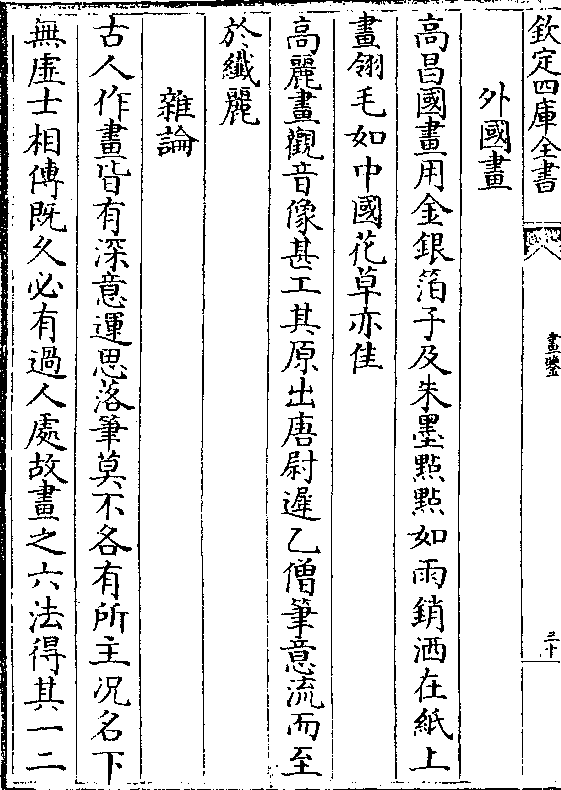 欽定四庫全書
畫鑒
三十
外國畫
高昌國畫用金銀箔子及朱墨點點如雨銷洒在紙上
畫翎毛如中國花草亦佳
高麗畫觀音像甚工其原出唐尉遲乙僧筆意流而至
於纖麗
雜論
古人作畫皆有深意運思落筆莫不各有所主况名下
無虛士相傳既久必有過人處故畫之六法得其一二